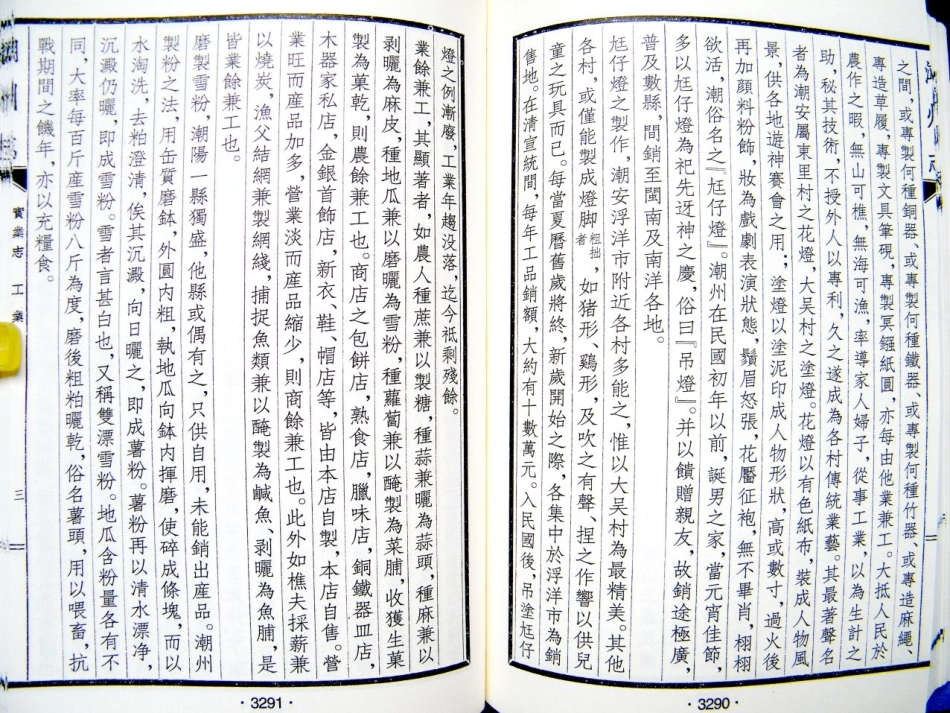 之間，或專製何種銅器、或專製何種鐵器、或專製何種竹器、或專造麻繩、
專造草履，專製文具筆硯，專製冥鏹紙圓，亦每由他業兼工。大抵人民於
農作之暇，無山可樵，無海可漁，率導家人婦子，從事工業，以為生計之
助，秘其技術，不授外人以專利，久之遂成為各村傳統業藝。其最著聲名
者為潮安屬東里村之花燈，大吴村之塗燈。花燈以有色紙布，裝成人物風
景，供各地遊神賽會之用；塗燈以塗泥印成人物形狀，高或數寸，過火後
再加顏料粉飾，妝為戲劇表演狀態，鬚眉怒張，花靨征袍，無不畢肖，栩栩
欲活，潮俗名之『尪仔燈』。潮州在民國初年以前，誕男之家，當元宵佳節，
多以尪仔燈為祀先迓神之慶，俗曰『吊燈』。并以饋贈親友，故銷途極廣，
普及數縣，間銷至閩南及南洋各地。
尪仔燈之製作，潮安浮洋市附近各村多能之，惟以大吴村為最精美。其他
各村，或僅能製成燈脚粗拙者，如猪形、鷄形，及吹之有聲、捏之作響以供兒
童之玩具而已。每當夏曆舊歲將終，新歲開始之際，各集中於浮洋市為銷
售地。在清宣統間，每年工品銷額，大約有十數萬元。入民國後，吊塗尪仔
3290
燈之例漸廢，工業年趨没落，迄今祇剩殘餘。
業餘兼工，其顯著者，如農人種蔗兼以製糖，種蒜兼曬為蒜頭，種麻兼以
剥曬為麻皮，種地瓜兼以磨曬為雪粉，種蘿蔔兼以醃製為菜脯，收獲生菓
製為菓乾，則農餘兼工也。商店之包餅店，熟食店，臘味店，銅鐵器皿店，
木器家私店，金銀首飾店，新衣、鞋、帽店等，皆由本店自製，本店自售。營
業旺而產品加多，營業淡而產品縮少，則商餘兼工也。此外如樵夫採薪兼
以燒炭，漁父結網兼製網綫，捕捉魚類兼以醃製為鹹魚、剥曬為魚脯，是
皆業餘兼工也。
磨製雪粉，潮陽一縣獨盛，他縣或偶有之，只供自用，未能銷出産品。潮州
製粉之法，用缶質磨鉢，外圓内粗，執地瓜向鉢内揮磨，使碎成條塊，而以
水淘洗，去粕澄清，俟其沉澱，向日曬之，即成薯粉。薯粉再以清水漂净，
沉澱仍曬，即成雪粉。雪者言甚白也，又稱雙漂雪粉。地瓜含粉量各有不
同，大率每百斤産雪粉八斤為度，磨後粗粕曬乾，俗名薯頭，用以喂畜，抗
戰期間之饑年，亦以充糧食。
實業志 工業
三
3291